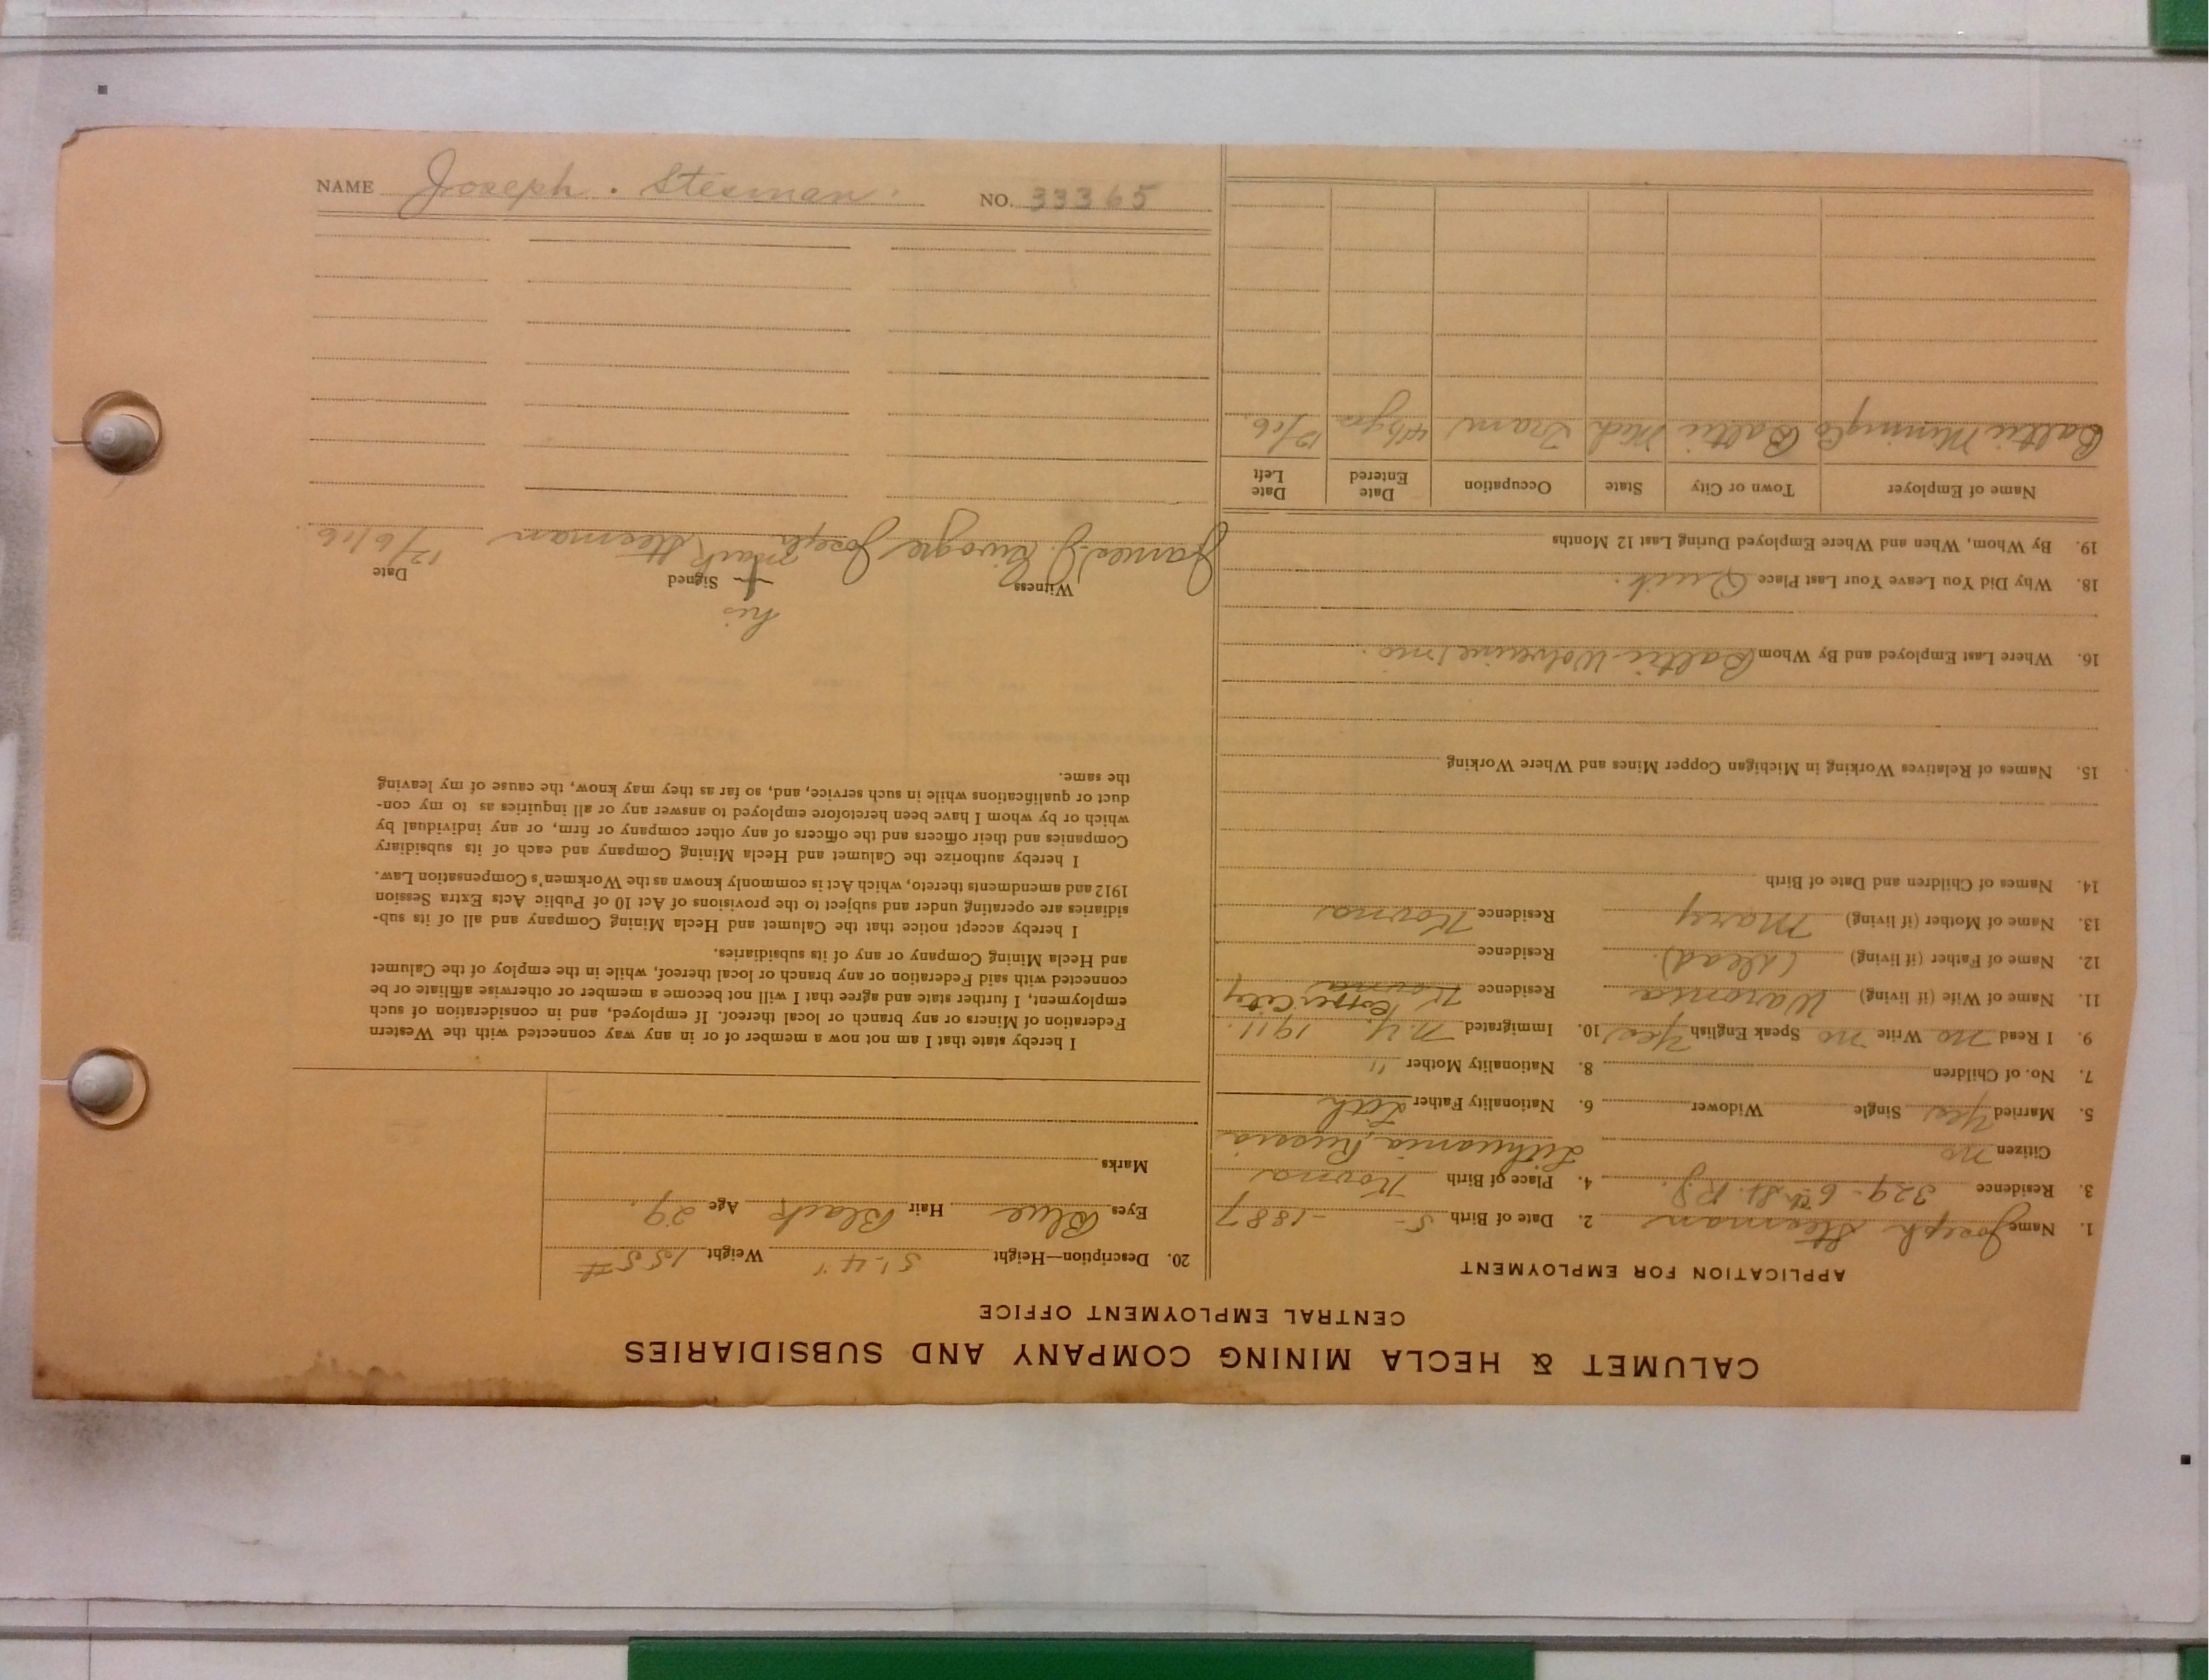 NAME Joseph . Stesman NO. 33365
CALUMET & HECLA MINING COMPANY AND SUBSIDIARIES
CENTRAL EMPLOYMENT OFFICE
APPLICATION FOR EMPLOYMENT
1. Name Joseph Stesman 2. Date of Birth 5 - - 1887
3. Residence 329 - 6th St. R.J. 4. Place of Birth Kovna
Citizen no Lithuania, Russia
5. Married Yes Single Widower 6. Nationality Father Lith
7. No. of Children 8. Nationality Mother "
9. I Read no Write no Speak English Yes 10. Immigrated N.Y. 1911.
11. Name of Wife (if living) Waronia Residence Kovna Copper City
12. Name of Father (if living) (dead). Residence
13. Name of Mother (if living) Mary Residence Kovna
14. Names of Children and Date of Birth
15. Names of Relatives Working in Michigan Copper Mines and Where Working
16. Where Last Employed and By Whom Baltic Wolverine 1 mo.
18. Why Did You Leave Your Last Place Quit.
19. By Whom, When and Where Employed During Last 12 Months
Name of Employer Town or City State Occupation Date Entered Date Left
Baltic Mining Co Baltic Mich Tram 4½ yrs 12/16.
20. Description—Height 5'-4" Weight 155#
Eyes Blue Hair Black Age 29.
Marks
I hereby state that I am not now a member of or in any way connected with the Western
Federation of Miners or any branch or local thereof. If employed, and in consideration of such
employment, I further state and agree that I will not become a member or otherwise affiliate or be
connected with said Federation or any branch or local thereof, while in the employ of the Calumet
and Hecla Mining Company or any of its subsidiaries.
I hereby accept notice that the Calumet and Hecla Mining Company and all of its sub-
sidiaries are operating under and subject to the provisions of Act 10 of Public Acts Extra Session
1912 and amendments thereto, which Act is commonly known as the Workmen's Compensation Law.
I hereby authorize the Calumet and Hecla Mining Company and each of its subsidiary
Companies and their officers and the officers of any other company or firm, or any individual by
which or by whom I have been heretofore employed to answer any or all inquiries as to my con-
duct or qualifications while in such service, and, so far as they may know, the cause of my leaving
the same.
his
Witness Signed Date
James J. Joseph mark Stesman 12/6/16